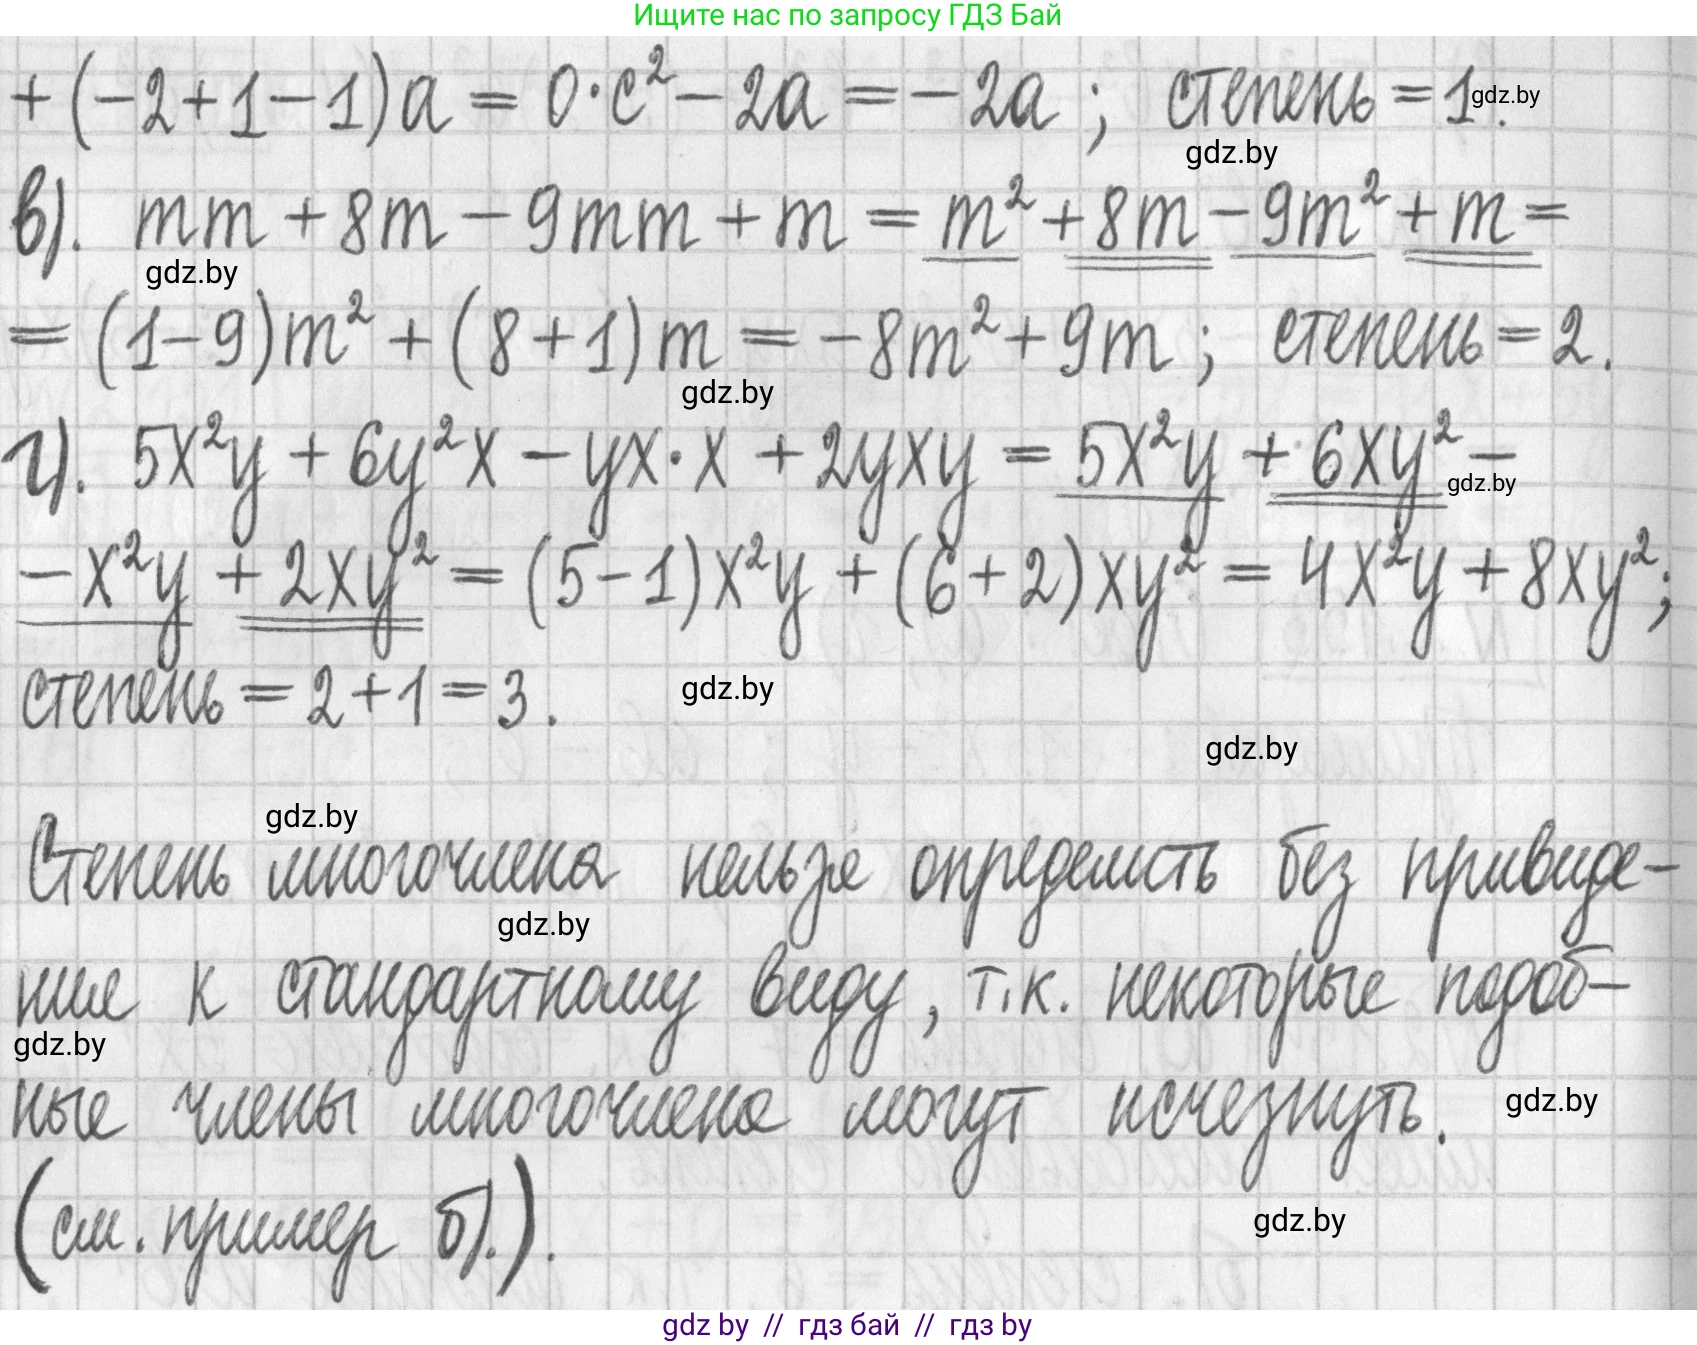 Ищите нас по запросу ГДЗ Бай
+ (-2+1-1)a = 0·c² - 2a = -2a ; степень = 1.
gdz.by
gdz.by
в). mm + 8m - 9mm + m = m² + 8m - 9m² + m =
gdz.by
= (1-9)m² + (8+1)m = -8m² + 9m ; степень = 2.
gdz.by
г). 5x²y + 6y²x - yx·x + 2yxy = 5x²y + 6xy² -
gdz.by
- x²y + 2xy² = (5-1)x²y + (6+2)xy² = 4x²y + 8xy²;
степень = 2+1 = 3.
gdz.by
gdz.by
gdz.by
Степень многочлена нельзя определить без приведе-
gdz.by
ния к стандартному виду, т.к. некоторые подоб-
gdz.by
ные члены многочлена могут исчезнуть.
gdz.by
(см. пример б).).
gdz.by
gdz by // гдз бай // гдз by